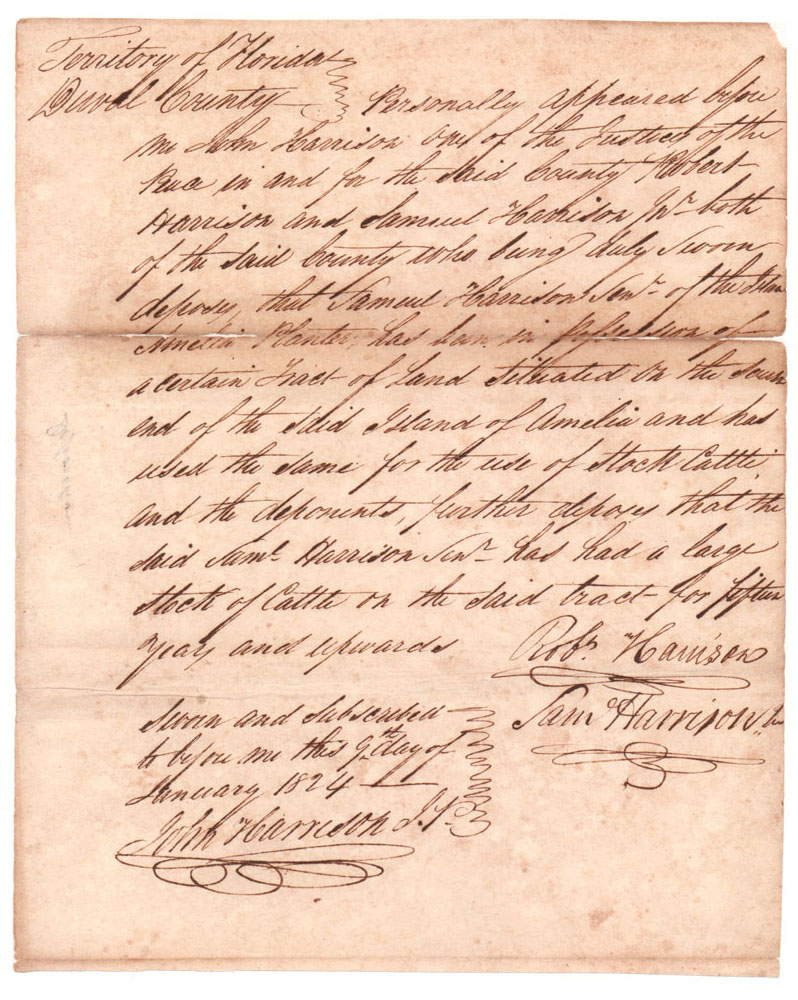 Territory of Florida
Duval County Personally appeared before
me John Harrison one of the Justices of the
Peace in and for the said County Robert
Harrison and Samuel Harrison Jnr. both
of the said County who being duly sworn
deposes, that Samuel Harrison Senr. of the
Amelia Planter, has been in possession of
a certain Tract of Land Situated on the South
end of the said Island of Amelia and has
used the same for the use of Stock Cattle,
and the deponents, further deposes that the
said Saml. Harrison Senr. has had a large
Stock of Cattle on the said tract for fifteen
Years and upwards
Robt. Harrison
Saml. Harrison
Sworn and Subscribed
to before me this 9th day of
January 1824
John Harrison J.P.